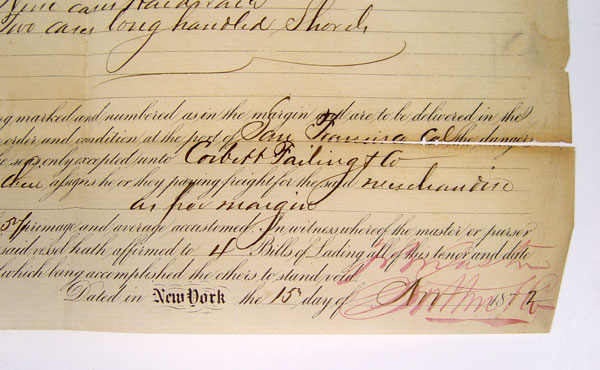 Nine cases Hardware
Two cases long handled Shovels
ng marked and numbered as in the margin and are to be delivered in the
order and condition at the port of San Francisco Cal the dangers
e seas only excepted unto Corbett Failing & Co
assigns he or they paying freight for the said merchandise
as per margin
5% primage and average accustomed. In witness whereof the master or purser
said vessel hath affirmed to 4 Bills of Lading all of this tenor and date
which being accomplished the others to stand void.
Dated in New York the 15 day of 1872